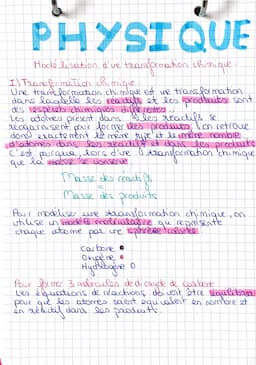 PHYSIQUE
Modélisation d'une transformation chimique
I) Transformation chimique
Une transformation chimique est une transformation
dans laquelle les réactifs et les produits sont
des espèces chimiques différentes.
Les atomes présent dans les réactifs se
réorganisent pour former des produits, l'on retrouve
donc exactement le même type et le même nombre
d'atomes dans les réactifs et dans les produits
C'est pourquoi, lors d'une transformation chimique
que la masse se conserve
Masse des réactifs
=
Masse des produits
Pour modéliser une transformation chimique, on
utilise un modèle moléculaire qui représente
chaque atome par une sphère colorée
Carbone
Oxygène
Hydrogène
Pour former 3 molécules de dioxyde de carbone
Les équations de réactions doivent être équilibrées
pour que les atomes soient équivalent en nombre et
en réactif dans les produits.